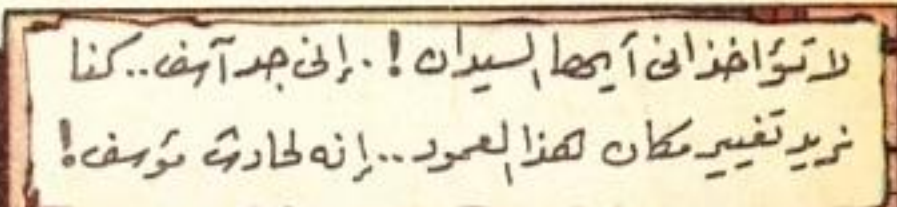 لا تؤاخذانى أيها السيدان ! . إنى جد آسف .. كنا
نريد تغيير مكان هذا العمود .. إنه لحادث مؤسف !